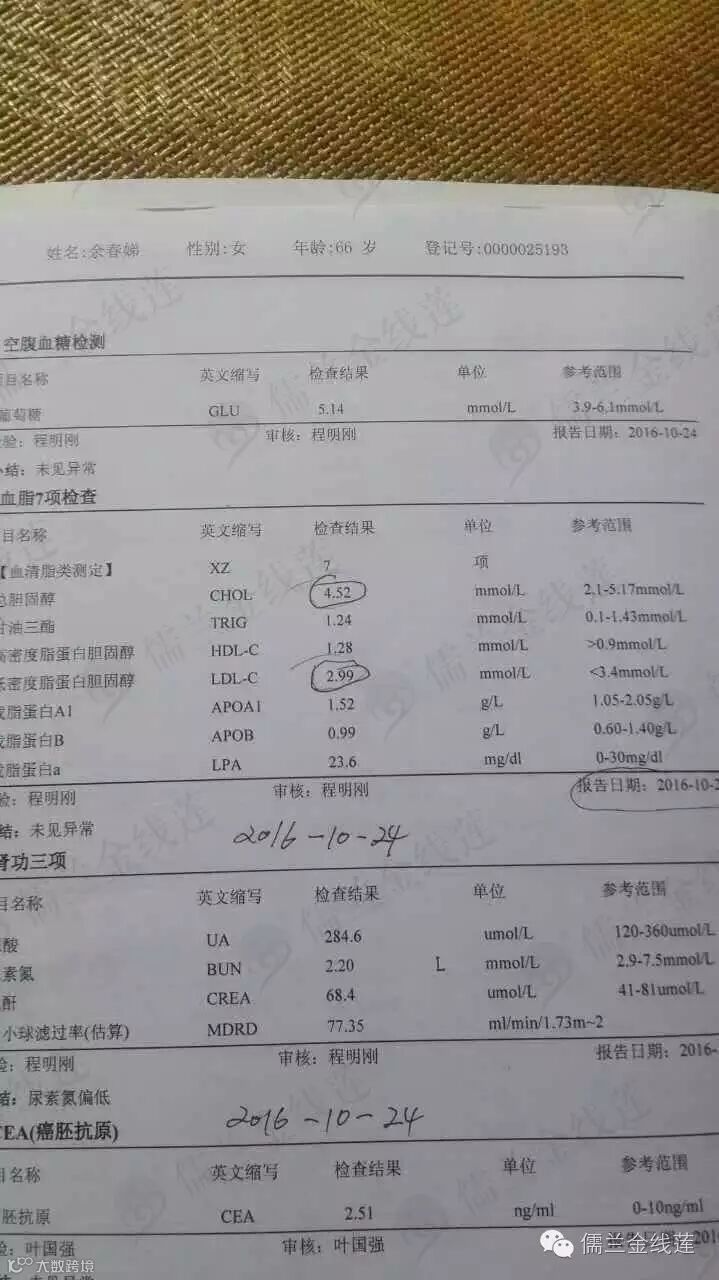 姓名:余春娣 性别:女 年龄:66 岁 登记号:0000025193
空腹血糖检测
项目名称 英文缩写 检查结果 单位 参考范围
葡萄糖 GLU 5.14 mmol/L 3.9-6.1mmol/L
验: 程明刚 审核: 程明刚 报告日期: 2016-10-24
小结: 未见异常
血脂7项检查
目名称 英文缩写 检查结果 单位 参考范围
【血清脂类测定】 XZ 7 项
总胆固醇 CHOL 4.52 mmol/L 2.1-5.17mmol/L
甘油三酯 TRIG 1.24 mmol/L 0.1-1.43mmol/L
高密度脂蛋白胆固醇 HDL-C 1.28 mmol/L >0.9mmol/L
低密度脂蛋白胆固醇 LDL-C 2.99 mmol/L <3.4mmol/L
脂蛋白A1 APOA1 1.52 g/L 1.05-2.05g/L
脂蛋白B APOB 0.99 g/L 0.60-1.40g/L
脂蛋白a LPA 23.6 mg/dl 0-30mg/dl
验: 程明刚 审核: 程明刚 报告日期: 2016-10-2
结: 未见异常 2016-10-24
肾功三项
目名称 英文缩写 检查结果 单位 参考范围
酸 UA 284.6 umol/L 120-360umol/L
素氮 BUN 2.20 L mmol/L 2.9-7.5mmol/L
酐 CREA 68.4 umol/L 41-81umol/L
小球滤过率(估算) MDRD 77.35 ml/min/1.73m~2
验: 程明刚 审核: 程明刚 报告日期: 2016-
结: 尿素氮偏低 2016-10-24
CEA(癌胚抗原)
目名称 英文缩写 检查结果 单位 参考范围
胚抗原 CEA 2.51 ng/ml 0-10ng/ml
验: 叶国强 审核: 叶国强
儒兰金线莲
大数跨境